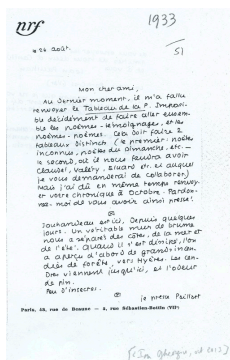 nrf
1933
le 24 août.
51
Mon cher ami,
Au dernier moment, il m'a fallu
renvoyer le Tableau de la P. Impossi-
ble décidément de faire aller ensem-
ble les poèmes-témoignages, et les
poèmes-poèmes. Cela doit faire 2
tableaux distincts (le premier: poètes
inconnus, poètes du Dimanche, etc. -
le second, où il nous faudra avoir
Claudel, Valéry, Eluard etc. et auquel
je vous demanderai de collaborer)
Mais j'ai dû en même temps renvoy-
er votre chronique à Octobre. Pardon-
nez-moi de vous avoir ainsi pressé.
Jouhandeau est ici. Depuis quelques
jours. Un véritable mur de brume
nous a séparés des côtes, de la mer et
de l'été. Quand il s'est dissipé, l'on
a aperçu d'abord de grands incen-
dies de forêt, vers Hyères. Les cen-
dres viennent jusqu'ici, et l'odeur
de pin.
Peu d'insectes.
je presse Paulhan
Paris, 43, rue de Beaune - 5, rue Sébastien-Bottin (VIIe)